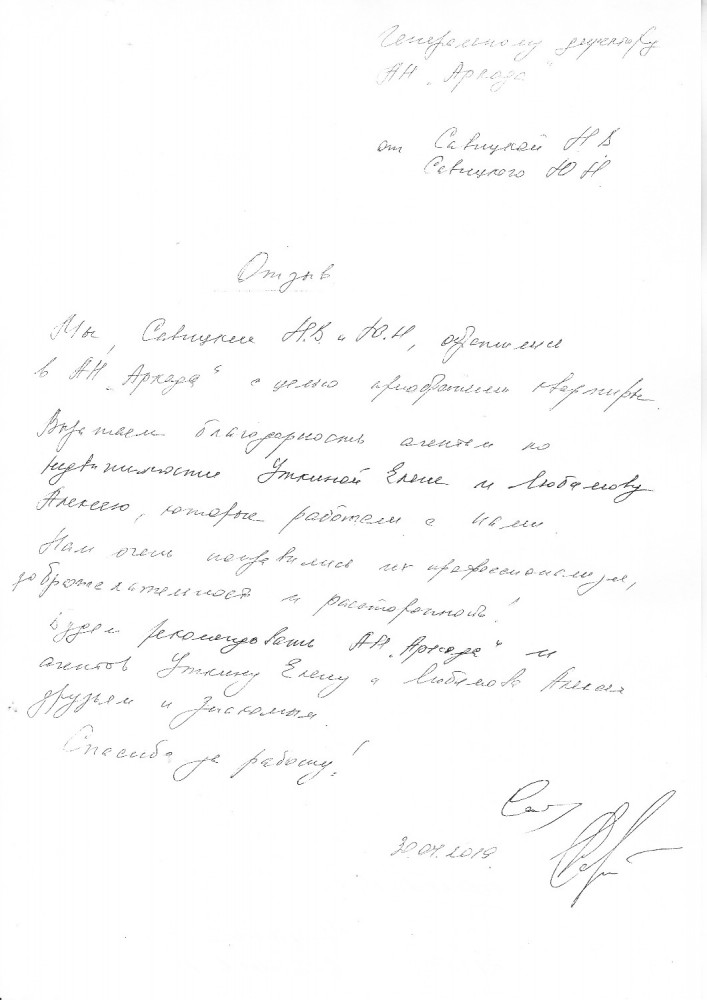 Генеральному директору
АН „Аркада"
от Савицкой Н.В.
Савицкого Ю.Н.
Отзыв
Мы, Савицкие Н.В. и Ю.Н, обратились
в АН „Аркада" с целью приобретения квартиры.
Выражаем благодарность агентам по
недвижимости Уткиной Елене и Любимову
Алексею, которые работали с нами.
Нам очень понравились их профессионализм,
доброжелательность и расторопность!
Будем рекомендовать АН „Аркада" и
агентов Уткину Елену и Любимова Алексея
друзьям и знакомым.
Спасибо за работу!
30.04.2019